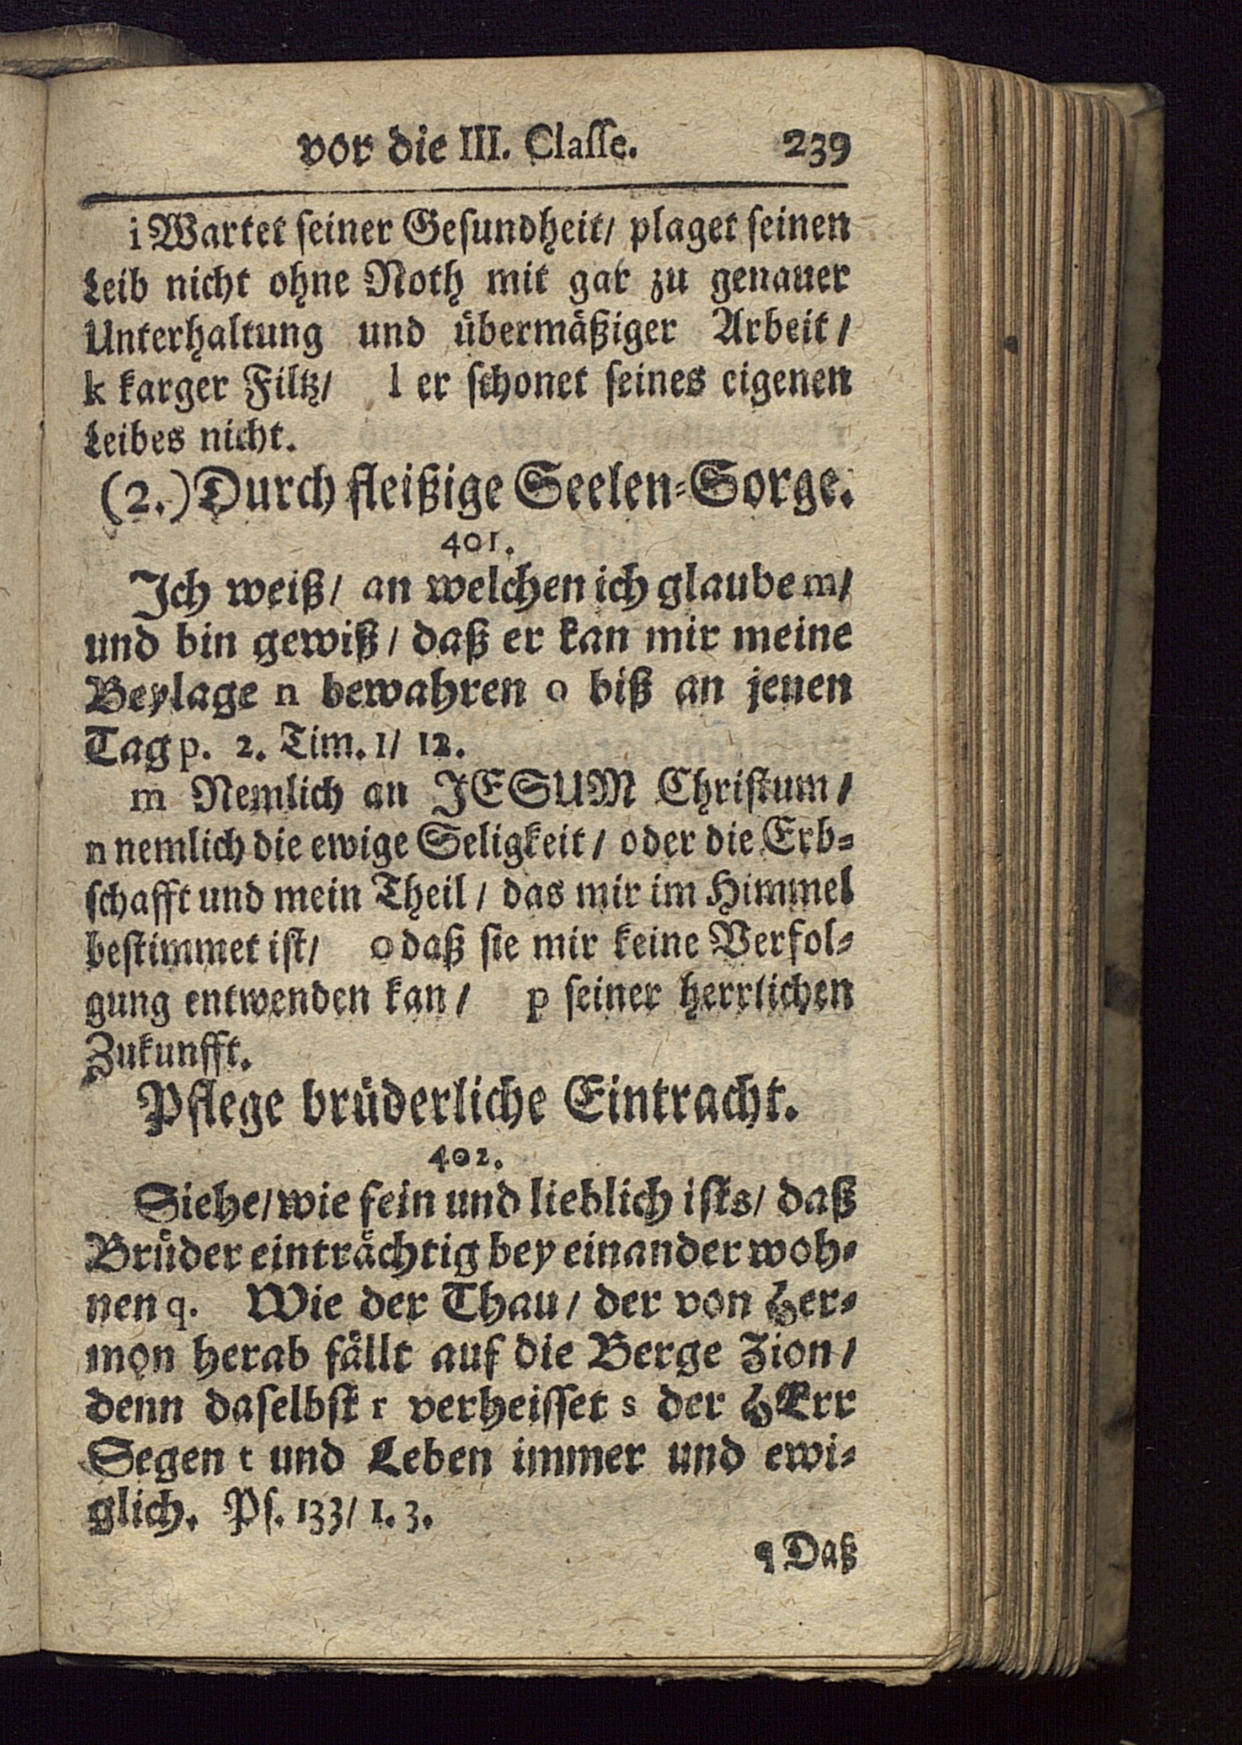 vor die III. Classe. 239
i Wartet seiner Gesundheit/ plaget seinen
Leib nicht ohne Noth mit gar zu genauer
Unterhaltung und übermäßiger Arbeit/
k karger Filtz/ l er schonet seines eigenen
Leibes nicht.
(2.) Durch fleißige Seelen-Sorge.
401.
Ich weiß/ an welchen ich glaube m/
und bin gewiß/ daß er kan mir meine
Beylage n bewahren o biß an jenen
Tag p. 2. Tim. 1/ 12.
m Nemlich an JESUM Christum/
n nemlich die ewige Seligkeit/ oder die Erb-
schafft und mein Theil/ das mir im Himmel
bestimmet ist/ o daß sie mir keine Verfol-
gung entwenden kan/ p seiner herrlichen
Zukunfft.
Pflege brüderliche Eintracht.
402.
Siehe/ wie fein und lieblich ists/ daß
Brüder einträchtig bey einander woh-
nen q. Wie der Thau/ der von Her-
mon herab fällt auf die Berge Zion/
denn daselbst r verheisset s der HErr
Segen t und Leben immer und ewi-
glich. Ps. 133/ 1. 3.
q Daß